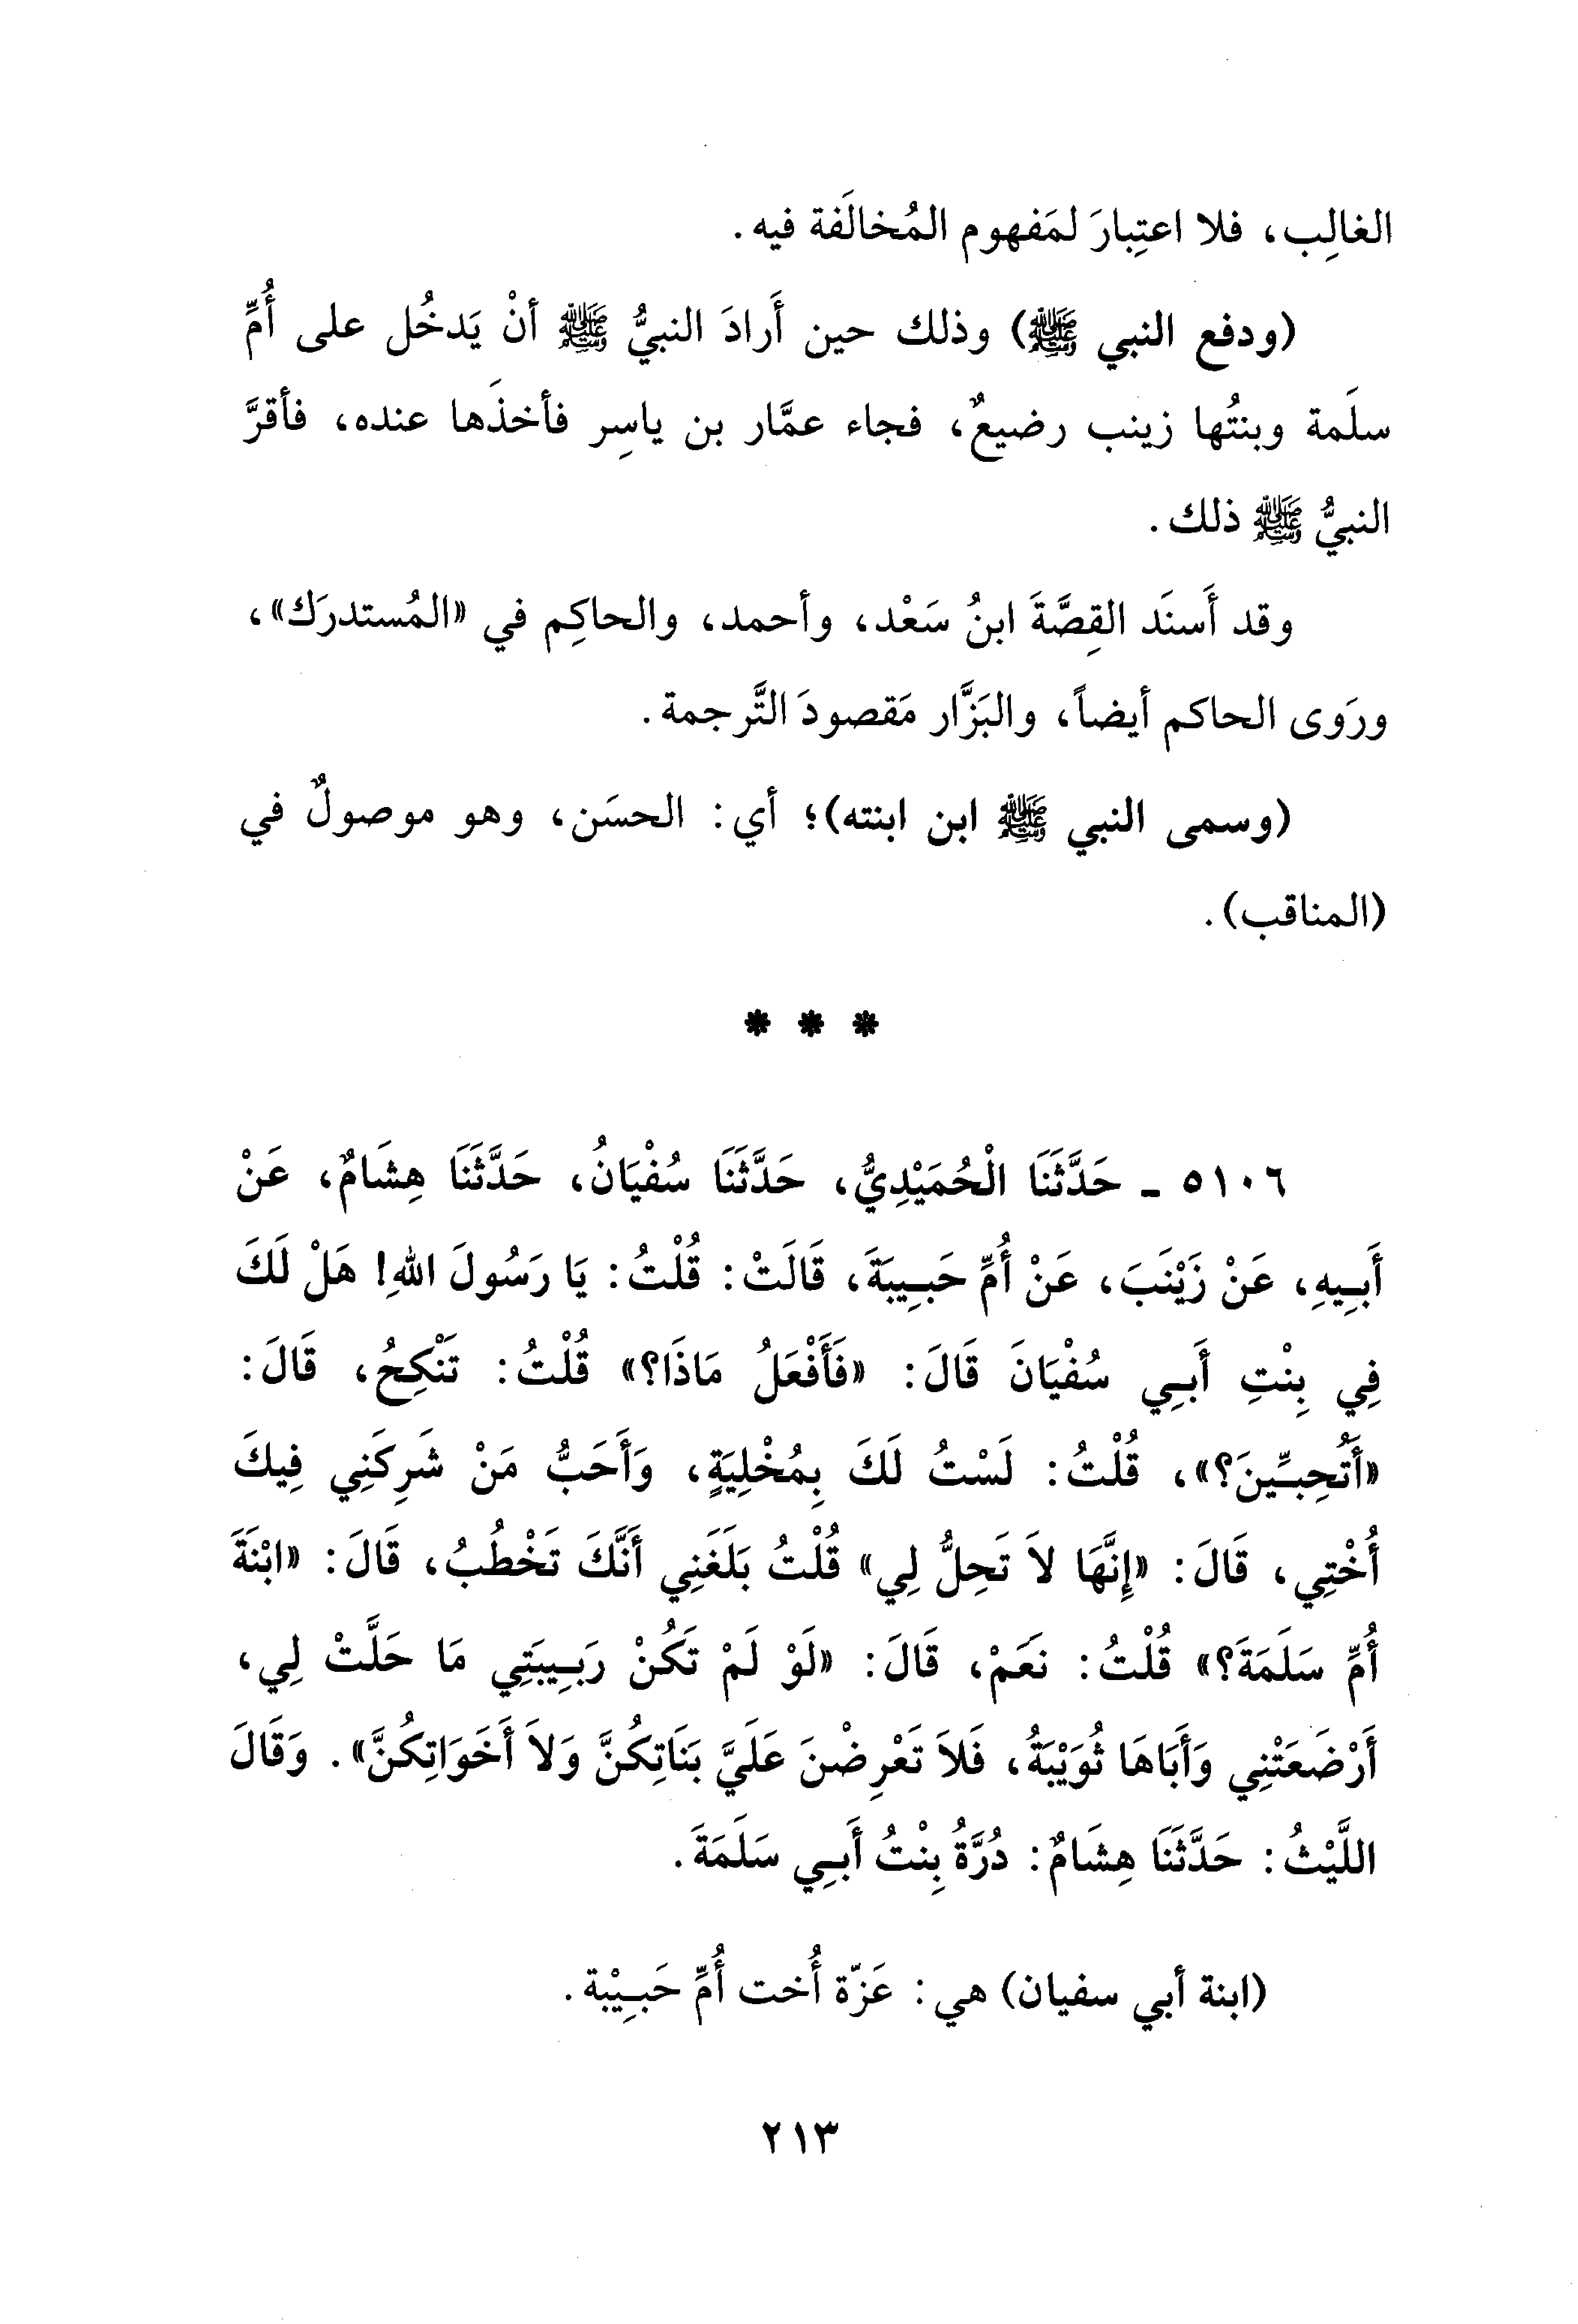 الغالِب، فلا اعتِبارَ لمَفهوم المُخالَفة فيه.
(ودفع النبي ﷺ) وذلك حين أَرادَ النبيُّ ﷺ أنْ يَدخُل على أُمِّ
سلَمة وبنتُها زينب رضيعٌ، فجاء عمَّار بن ياسِر فأخذَها عنده، فأقرَّ
النبيُّ ﷺ ذلك.
وقد أَسنَد القِصَّةَ ابنُ سَعْد، وأحمد، والحاكِم في «المُستدرَك»،
ورَوى الحاكم أيضاً، والبَزَّار مَقصودَ التَّرجمة.
(وسمى النبي ﷺ ابن ابنته)؛ أي: الحسَن، وهو موصولٌ في
(المناقب).
* * *
٥١٠٦ - حَدَّثَنَا الْحُمَيْدِيُّ، حَدَّثَنَا سُفْيَانُ، حَدَّثَنَا هِشَامٌ، عَنْ
أَبِيهِ، عَنْ زَيْنَبَ، عَنْ أُمِّ حَبِيبَةَ، قَالَتْ: قُلْتُ: يَا رَسُولَ اللهِ! هَلْ لَكَ
فِي بِنْتِ أَبِي سُفْيَانَ قَالَ: «فَأَفْعَلُ مَاذَا؟» قُلْتُ: تَنْكِحُ، قَالَ:
«أَتُحِبِّينَ؟»، قُلْتُ: لَسْتُ لَكَ بِمُخْلِيَةٍ، وَأَحَبُّ مَنْ شَرِكَنِي فِيكَ
أُخْتِي، قَالَ: «إِنَّهَا لاَ تَحِلُّ لِي» قُلْتُ بَلَغَنِي أَنَّكَ تَخْطُبُ، قَالَ: «ابْنَةَ
أُمِّ سَلَمَةَ؟» قُلْتُ: نَعَمْ، قَالَ: «لَوْ لَمْ تَكُنْ رَبِيبَتِي مَا حَلَّتْ لِي،
أَرْضَعَتْنِي وَأَبَاهَا ثُوَيْبَةُ، فَلاَ تَعْرِضْنَ عَلَيَّ بَنَاتِكُنَّ وَلاَ أَخَوَاتِكُنَّ». وَقَالَ
اللَّيْثُ: حَدَّثَنَا هِشَامٌ: دُرَّةُ بِنْتُ أَبِي سَلَمَةَ.
(ابنة أبي سفيان) هي: عَزّة أُخت أُمِّ حَبِيْبة.
٢١٣